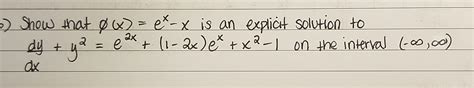 ) Show that φ(x) = eˣ - x is an explicit solution to
dy/dx + y² = e²ˣ + (1 - 2x)eˣ + x² - 1 on the interval (-∞,∞)